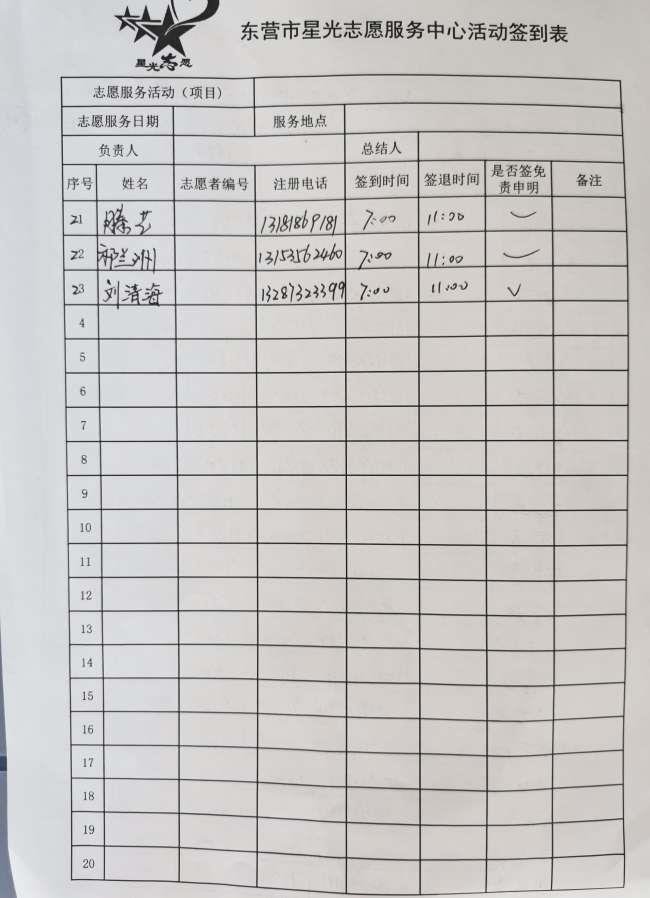 星光志愿
东营市星光志愿服务中心活动签到表
志愿服务活动（项目）
志愿服务日期 服务地点
负责人 总结人
序号 姓名 志愿者编号 注册电话 签到时间 签退时间 是否签免责申明 备注
21 滕艺 13181869181 7:00 11:00 ✓
22 祁兰州 13153562460 7:00 11:00 ✓
23 刘清海 13287323399 7:00 11:00 ✓
4
5
6
7
8
9
10
11
12
13
14
15
16
17
18
19
20